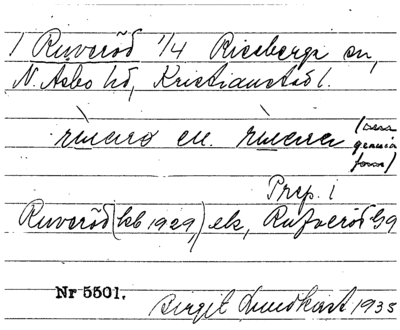 1 Ruveröd 1/4 Riseberga sn,
N. Åsbo hd, Kristianstad l.
rùvarö el. rùvarer (den
gamla
form)
Prep. i
Ruveröd (kb 1929,) ek, Rufveröd G9
Nr 5501. Birgit Lundkast 1935